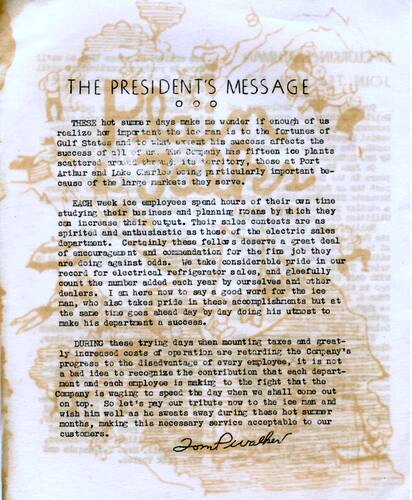 THE PRESIDENT'S MESSAGE
THESE hot summer days make me wonder if enough of us
realize how important the ice man is to the fortunes of
Gulf States and to what extent his success affects the
success of all of us. The Company has fifteen ice plants
scattered around through its territory, those at Port
Arthur and Lake Charles being particularly important be-
cause of the large markets they serve.
EACH week ice employees spend hours of their own time
studying their business and planning means by which they
can increase their output. Their sales contests are as
spirited and enthusiastic as those of the electric sales
department. Certainly these fellows deserve a great deal
of encouragement and commendation for the firm job they
are doing against odds. We take considerable pride in our
record for electrical refrigerator sales, and gleefully
count the number added each year by ourselves and other
dealers. I am here now to say a good word for the ice
man, who also takes pride in these accomplishments but at
the same time goes ahead day by day doing his utmost to
make his department a success.
DURING these trying days when mounting taxes and great-
ly increased costs of operation are retarding the Company's
progress to the disadvantage of every employee, it is not
a bad idea to recognize the contribution that each depart-
ment and each employee is making to the fight that the
Company is waging to speed the day when we shall come out
on top. So let's pay our tribute now to the ice man and
wish him well as he sweats away during these hot summer
months, making this necessary service acceptable to our
customers.
Tom P Walker